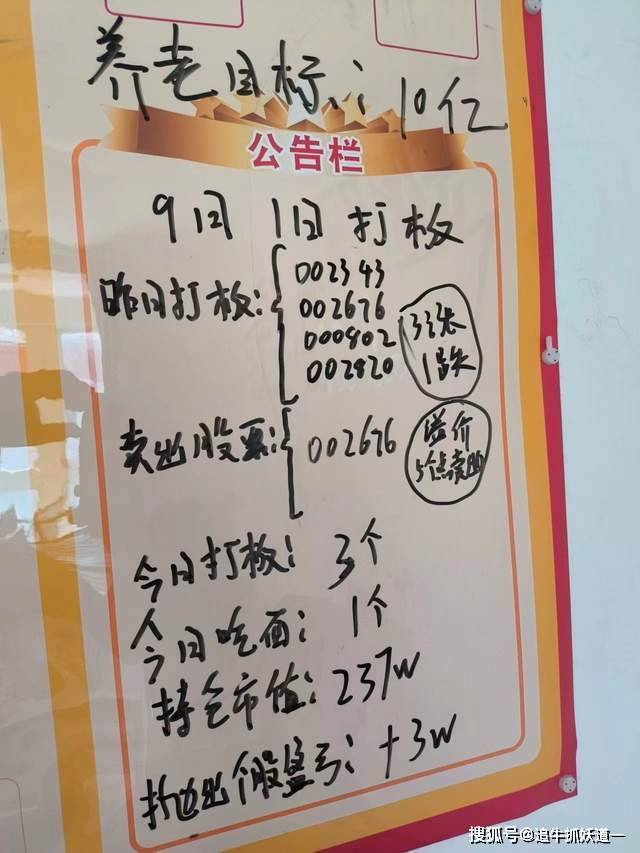 养老目标：10亿
公告栏
9日1日打板
昨日打板：
002343
002676
000802
002820
3涨
1跌
卖出股票：
002676
溢价
5个点卖出
今日打板：3个
今日吃面：1个
持仓市值：237w
个股盈亏：+3w
搜狐号@追牛抓妖道一